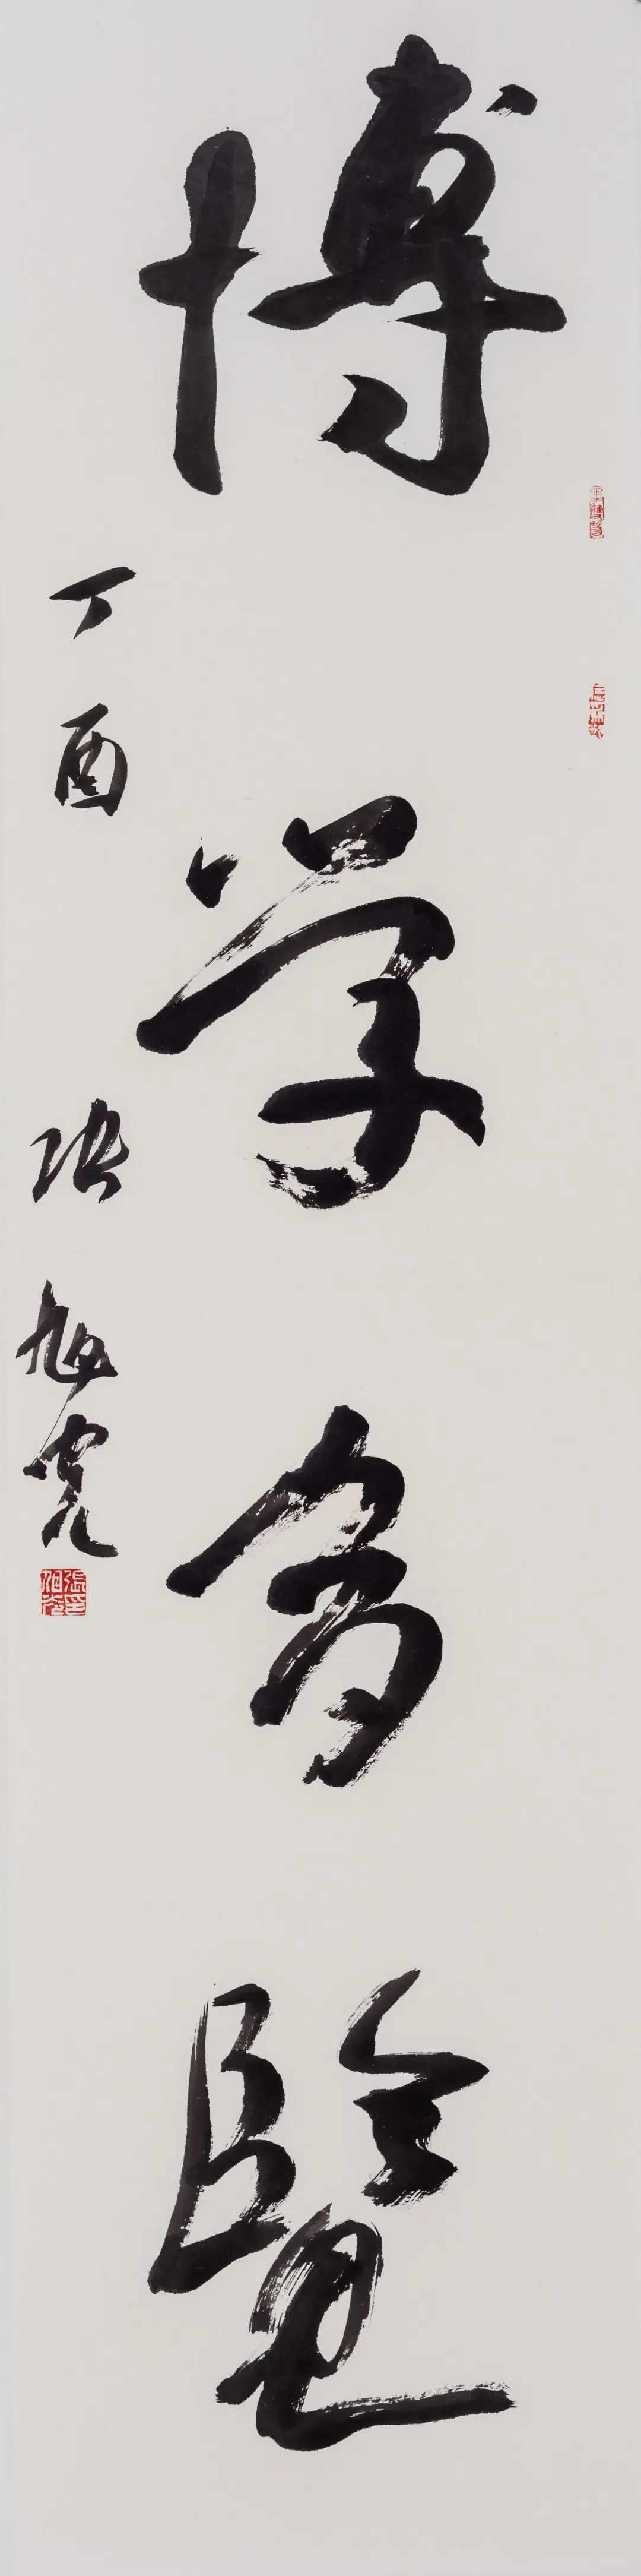 博学多览
丁酉 张旭光